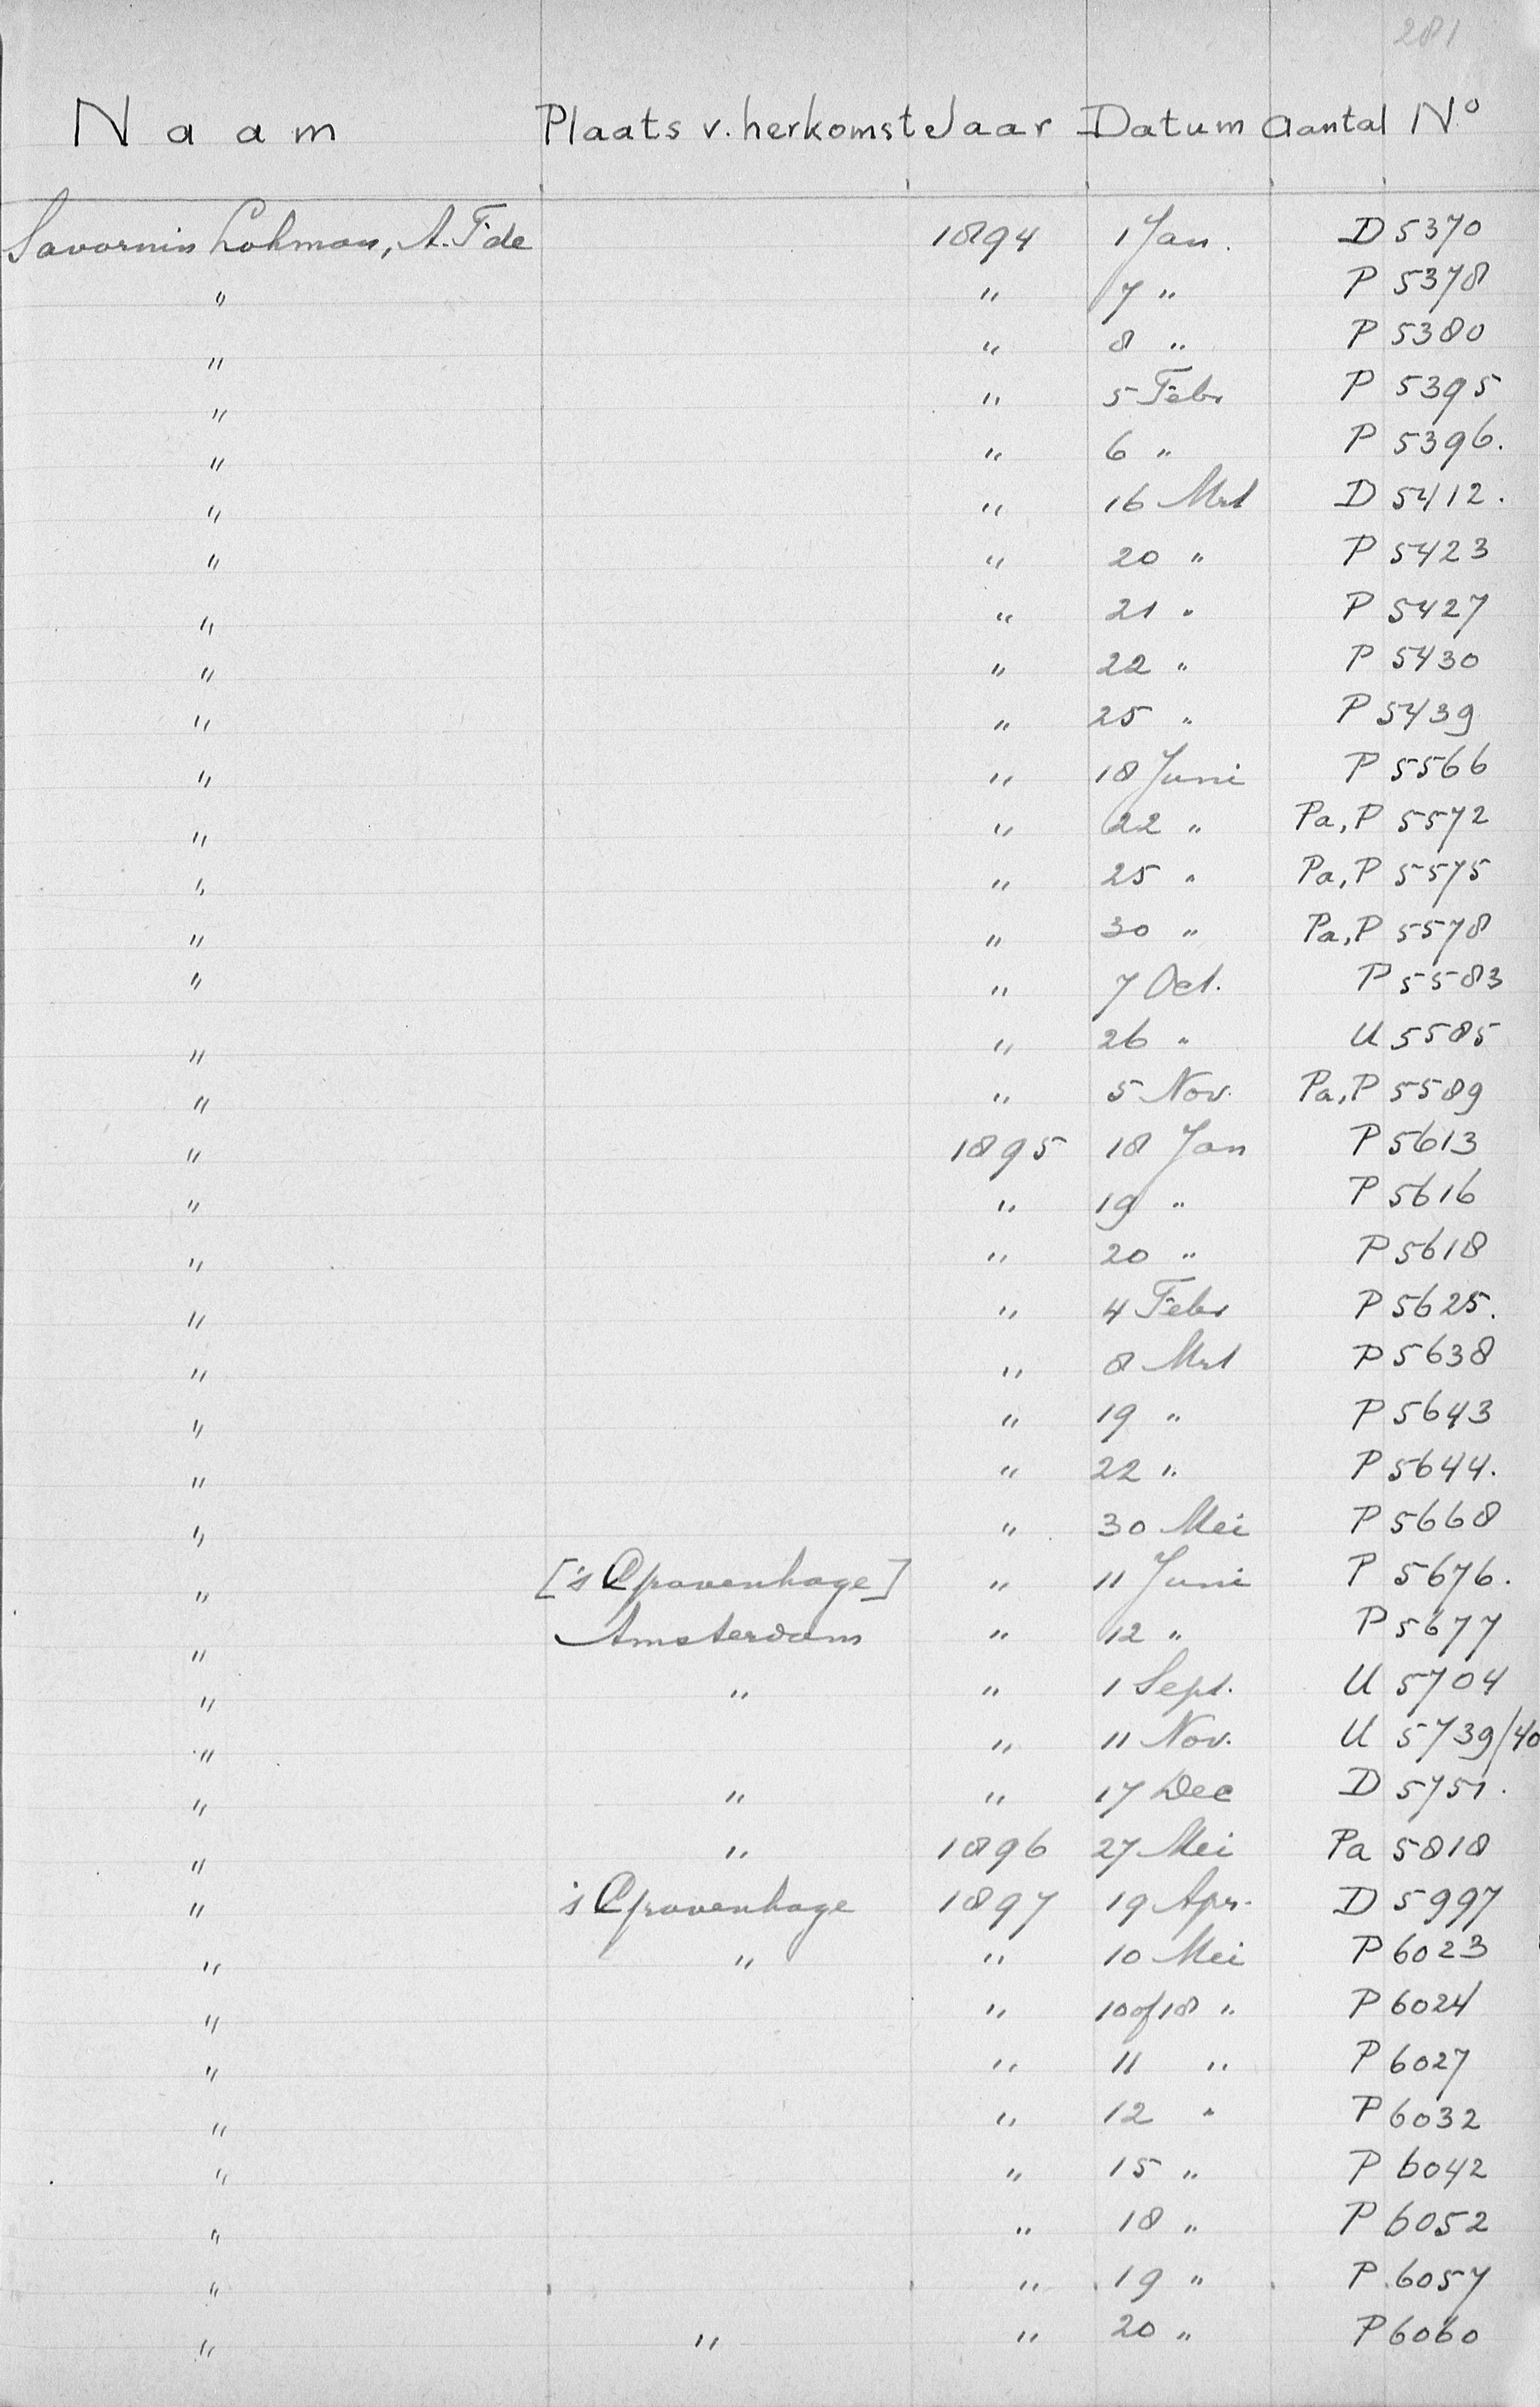 281
Naam Plaats v. herkomst Jaar Datum Aantal No
Savornin Lohman, A.F. de 1894 1 Jan. D 5370
" " 7 " P 5378
" " 8 " P 5380
" " 5 Febr P 5395
" " 6 " P 5396.
" " 16 Mrt D 5412.
" " 20 " P 5423
" " 21 " P 5427
" " 22 " P 5430
" " 25 " P 5439
" " 18 Juni P 5566
" " 22 " Pa, P 5572
" " 25 " Pa, P 5575
" " 30 " Pa, P 5578
" " 7 Oct. P 5583
" " 26 " U 5585
" " 5 Nov. Pa, P 5589
" 1895 18 Jan P 5613
" " 19 " P 5616
" " 20 " P 5618
" " 4 Febr P 5625.
" " 8 Mrt P 5638
" " 19 " P 5643
" " 22 " P 5644.
" " 30 Mei P 5668
" ['s Gravenhage] " 11 Juni P 5676.
" Amsterdam " 12 " P 5677
" " " 1 Sept. U 5704
" " 11 Nov. U 5739/40
" " " 17 Dec D 5751.
" " 1896 27 Mei Pa 5818
" 's Gravenhage 1897 19 Apr. D 5997
" " " 10 Mei P 6023
" " 10 of 18 " P 6024
" " 11 " P 6027
" " 12 " P 6032
" " 15 " P 6042
" " 18 " P 6052
" " 19 " P 6057
" " " 20 " P 6060